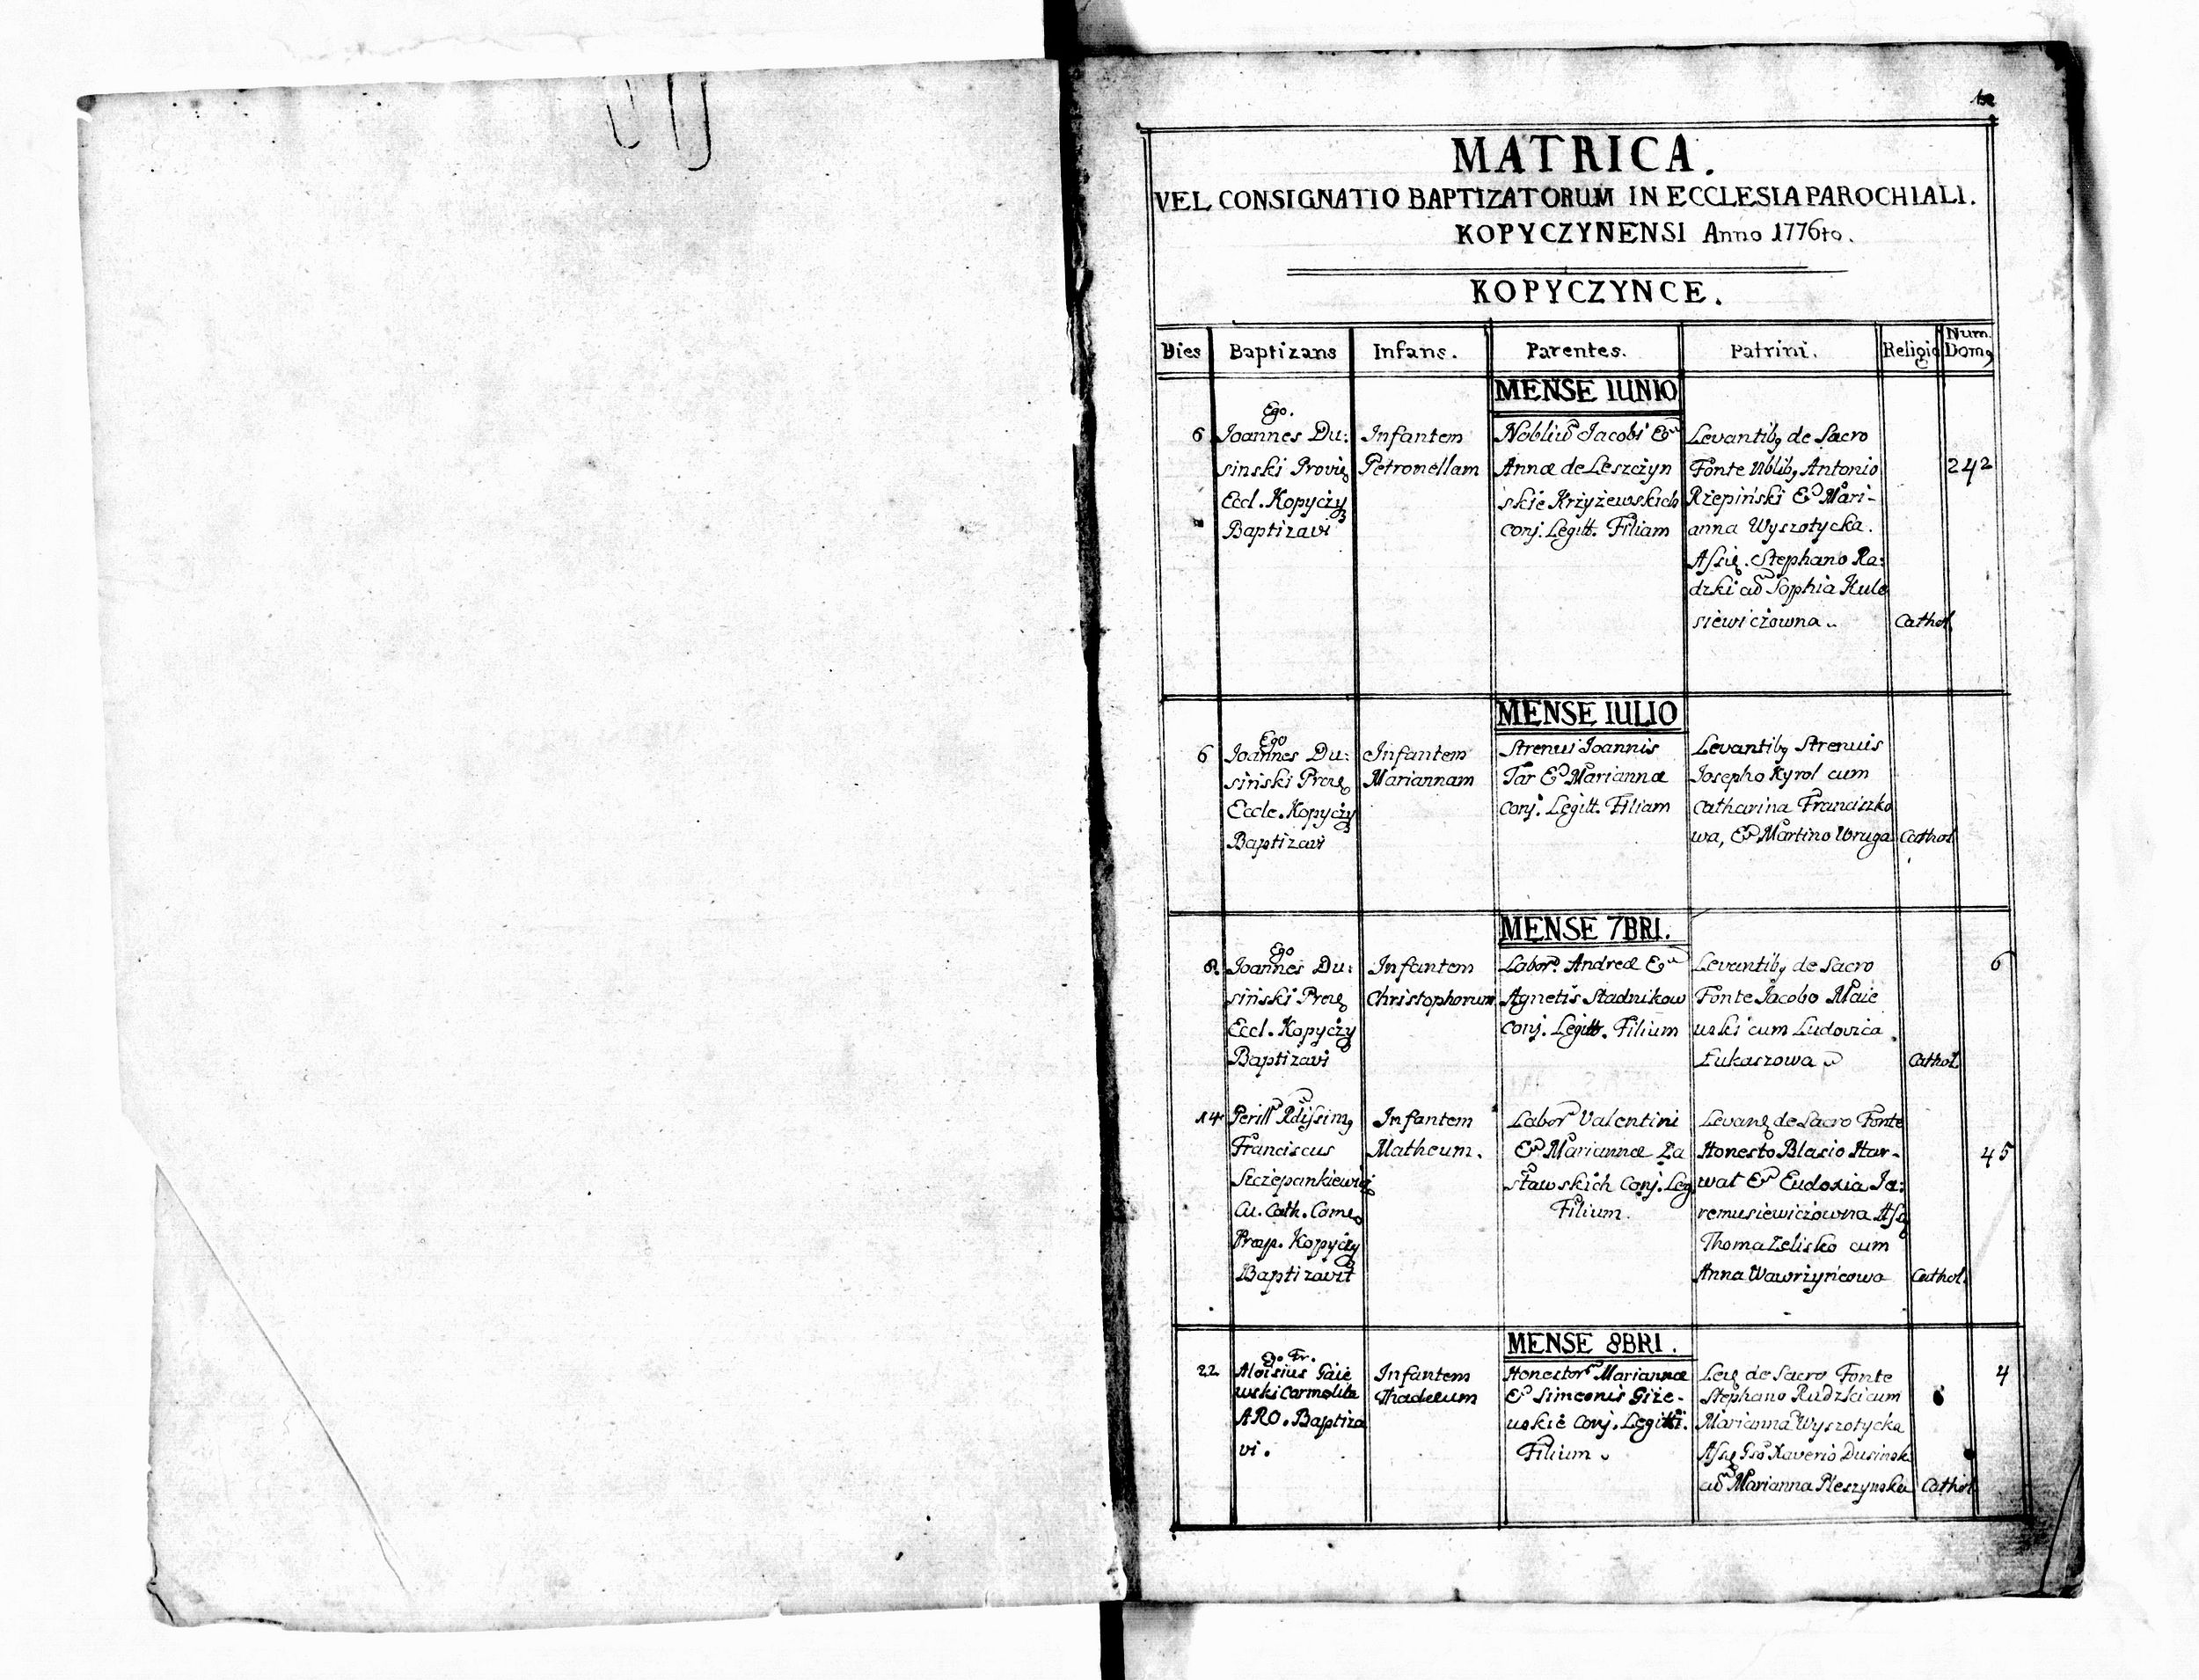 MATRICA.
VEL CONSIGNATIO BAPTIZATORUM IN ECCLESIA PAROCHIALI.
KOPYCZYNENSI Anno 1776to.
KOPYCZYNCE.
Dies Baptizans Infans. Parentes. Patrini. Religio Num. Dom,
MENSE IUNIO
6
Ego.
Joannes Du:
sinski
Eccl. Kopyczy
Baptizavi
Infantem
Petronellam
Jacobi &
Annæ de Leszczyn
skie Krzyżewskich
conj. Legitt. Filiam
Levantib, de Sacro
Fonte Antonio
Rzepiński & Mari-
anna Wyszotycka.
Stephano
Sophia Kule
siewiczowna
Cathol.
242
MENSE IULIO
6
Ego
Joannes Du:
siński
Eccle. Kopyczy
Baptizavi
Infantem
Mariannam
Strenui Joannis
Tar & Mariannæ
conj. Legitt. Filiam
Levantib, Strenuis
Josepho Kyrol cum
Catharina Franciszko
wa, & Martino
Cathol
MENSE 7BRI.
8.
Ego
Joannes Du:
siński
Eccl. Kopyczy
Baptizavi
Infantem
Christophorum
Labor. Andreæ &
Agnetis Stadnikow
conj. Legitt. Filium
Levantib, de Sacro
Fonte Jacobo Maie
wski cum Ludovica
Łukaszowa
Cathol.
6
14
Perill
Franciscus
Szczepankiewicz
Cath.
Præp. Kopyczy
Baptizavit
Infantem
Matheum.
Labor Valentini
& Mariannæ Za
sławskich Conj. Leg
Filium.
de Sacro Fonte
Honesto Blasio Har-
wat & Eudoxia Ja:
remusiewiczowna
Thoma Zelisko cum
Anna Wawrzyńcowa
Cathol.
45
MENSE 8BRI.
22
Ego Fr.
Aloisius Gaie
wski Carmelita
ARO. Baptiza
vi.
Infantem
Thadeum
Honestor Mariannæ
& Simeonis Giże-
wskie Conj. Legitti.
Filium
de Sacro Fonte
Stephano Rudzki cum
Marianna Wyszotycka
Xaverio Dusinsk
Marianna
Cathol
4